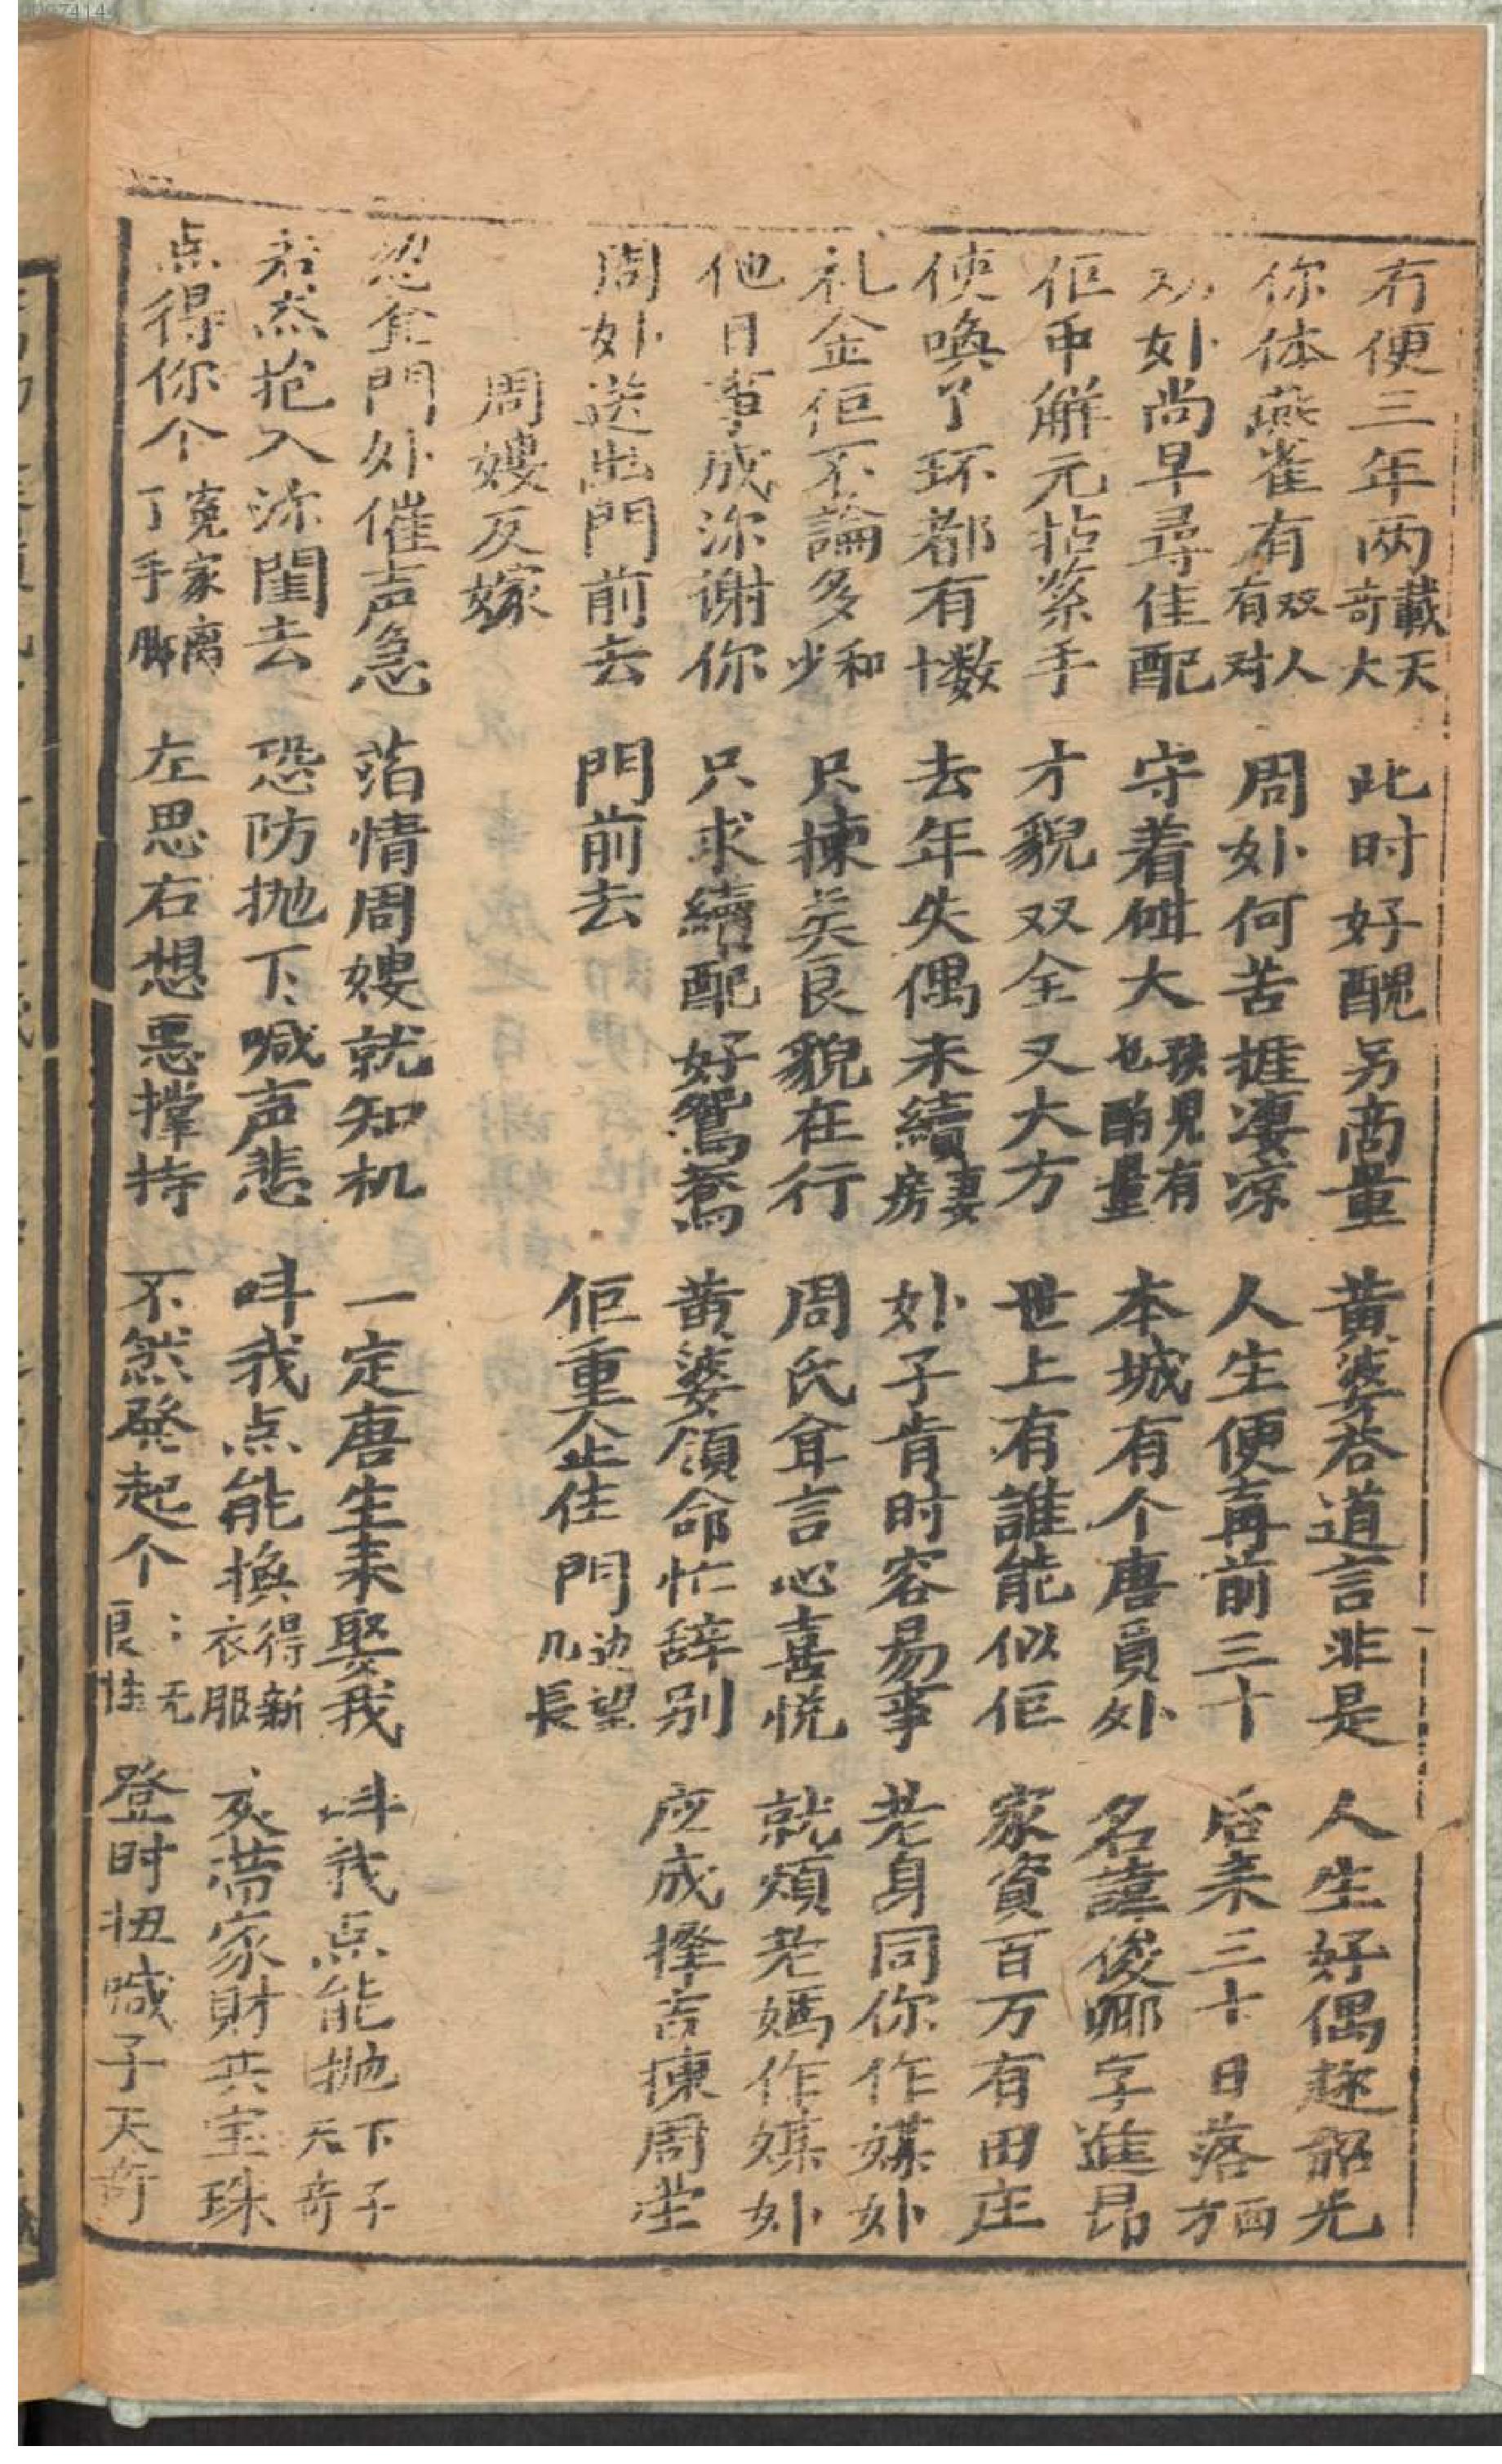 冇便三年两載奇天大 此时好醜另商量 黄婆答道言非是 人生好偶趂韶光
你体燕雀有双有人对 周妳何苦捱凄凉 人生便再前三十 后来三十日落西方
劝妳尚早尋佳配 守着 大孩也兒酌有量 本城有个唐員外 名諱俊卿字進昂
佢中解元拈紧手 才貌双全又大方 世上有誰能似佢 家資百万有田庄
使喚丫环都有数十 去年失偶未續妻房 妳子肯时容易事 老身同你作媒妳
礼金佢不論多和少 只揀吴良貌在行 周氏耸言心喜悦 就煩老媽作媒妳
他日事成沵谢你 只求續配好鴛鴦 黄婆領命忙辞别 应成择吉揀周堂
周妳送出門前去 門前去 佢重企住門边几望長
周嫂反嫁
忽耸門外催声急 萡情周嫂就知机 一定唐生来娶我 呌我点能抛下子无奇
若然抱入沵閨去 恐防抛下喊声悲 呌我点能换得衣新服 亥带家财共宝珠
点得你个寃丁家手离脚 左思右想恶撑持 不然發起个良无性 登时扭喊子天奇